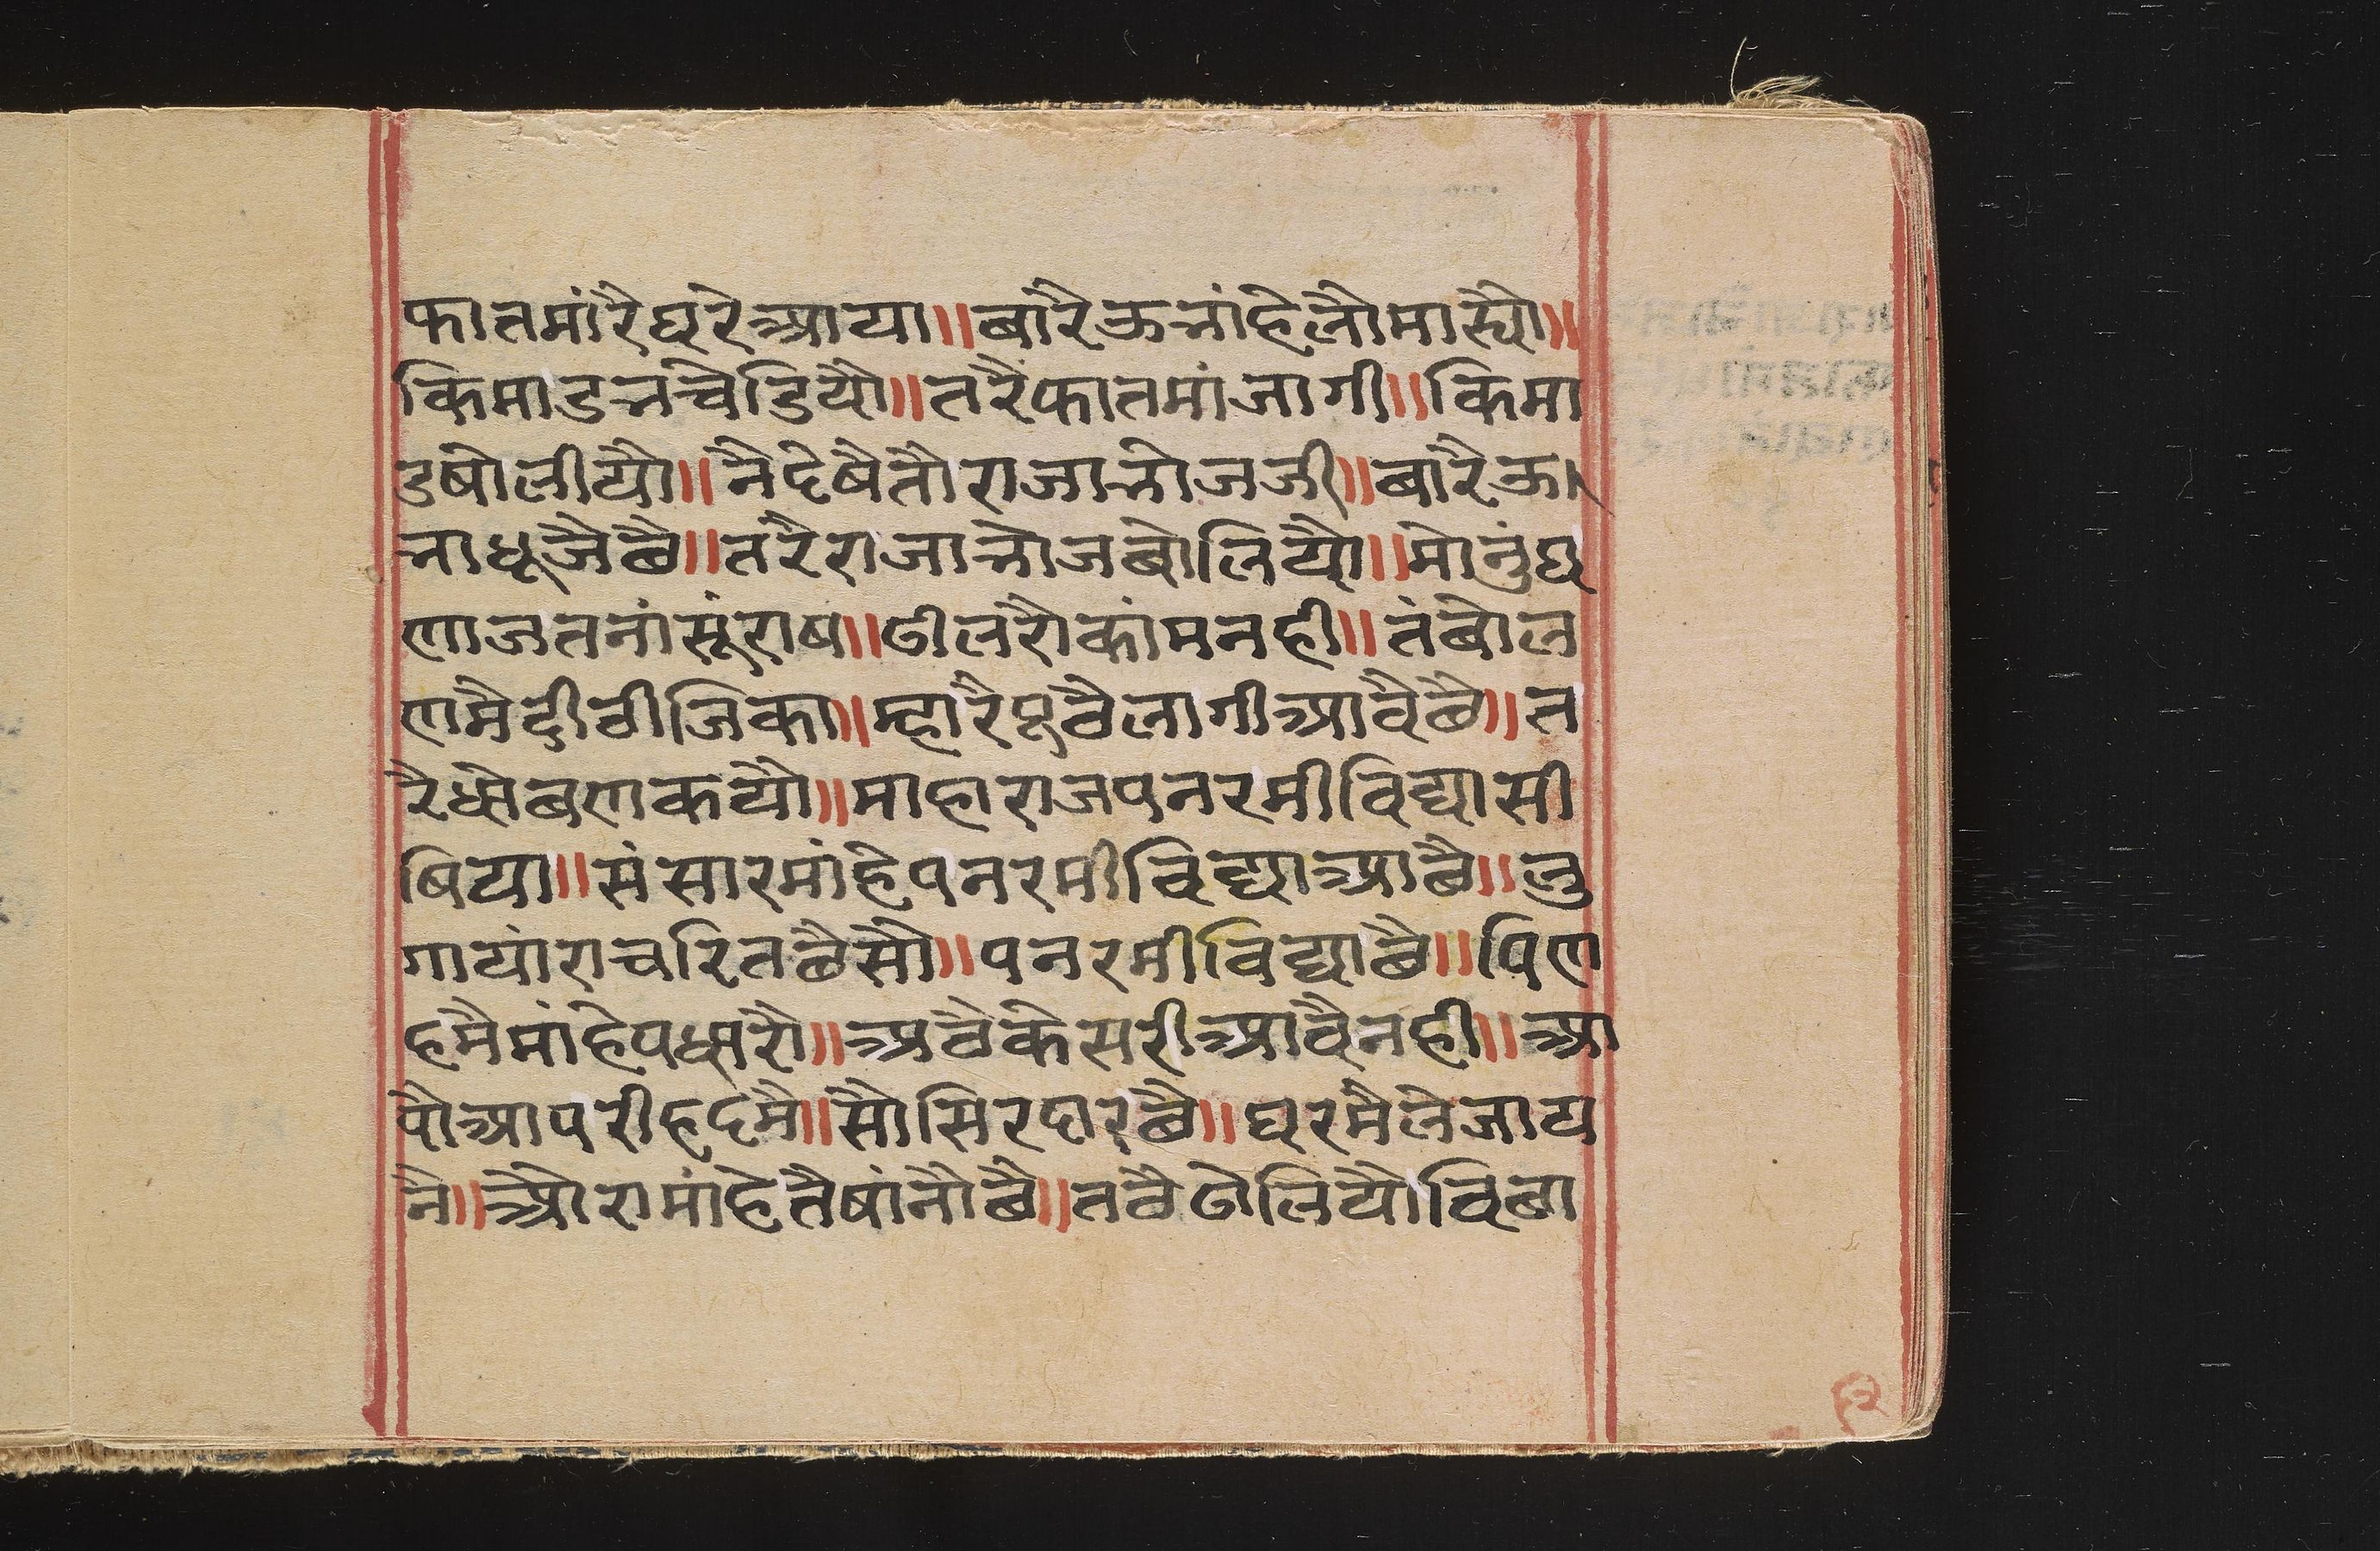 फातमांरैघरेआया॥बारैऊभांहेलौमास्यो॥
किमाडनचेडियौ॥तरैफातमांजागी॥किमा
डषोलीयौ॥नैदेषैतौराजाभोजजी॥बारैऊ
भाधूजैछै॥तरैराजाभोजबोलियौ॥मोनुंघ
णाजतनांसूंराष॥ढीलरौकांमनही॥तंबोल
णमैदीवीजिका॥म्हारैपूठैलागीआवैछै॥त
रैधोबणकयौ॥माहाराजपनरमीविद्यासी
षिया॥संसारमांहेपनरमीविद्याआछै॥लु
गायांराचरितछैसौ॥पनरमीविद्याछै॥पिण
हमैमांहेपधारौ॥अठैकेसरीआवैनही॥आ
पौआपरीहदमै॥सौसिरदारछै॥घरमैलेजाय
नै॥ओरामांहेतैषांनौछै॥तठैढोलियौविछा